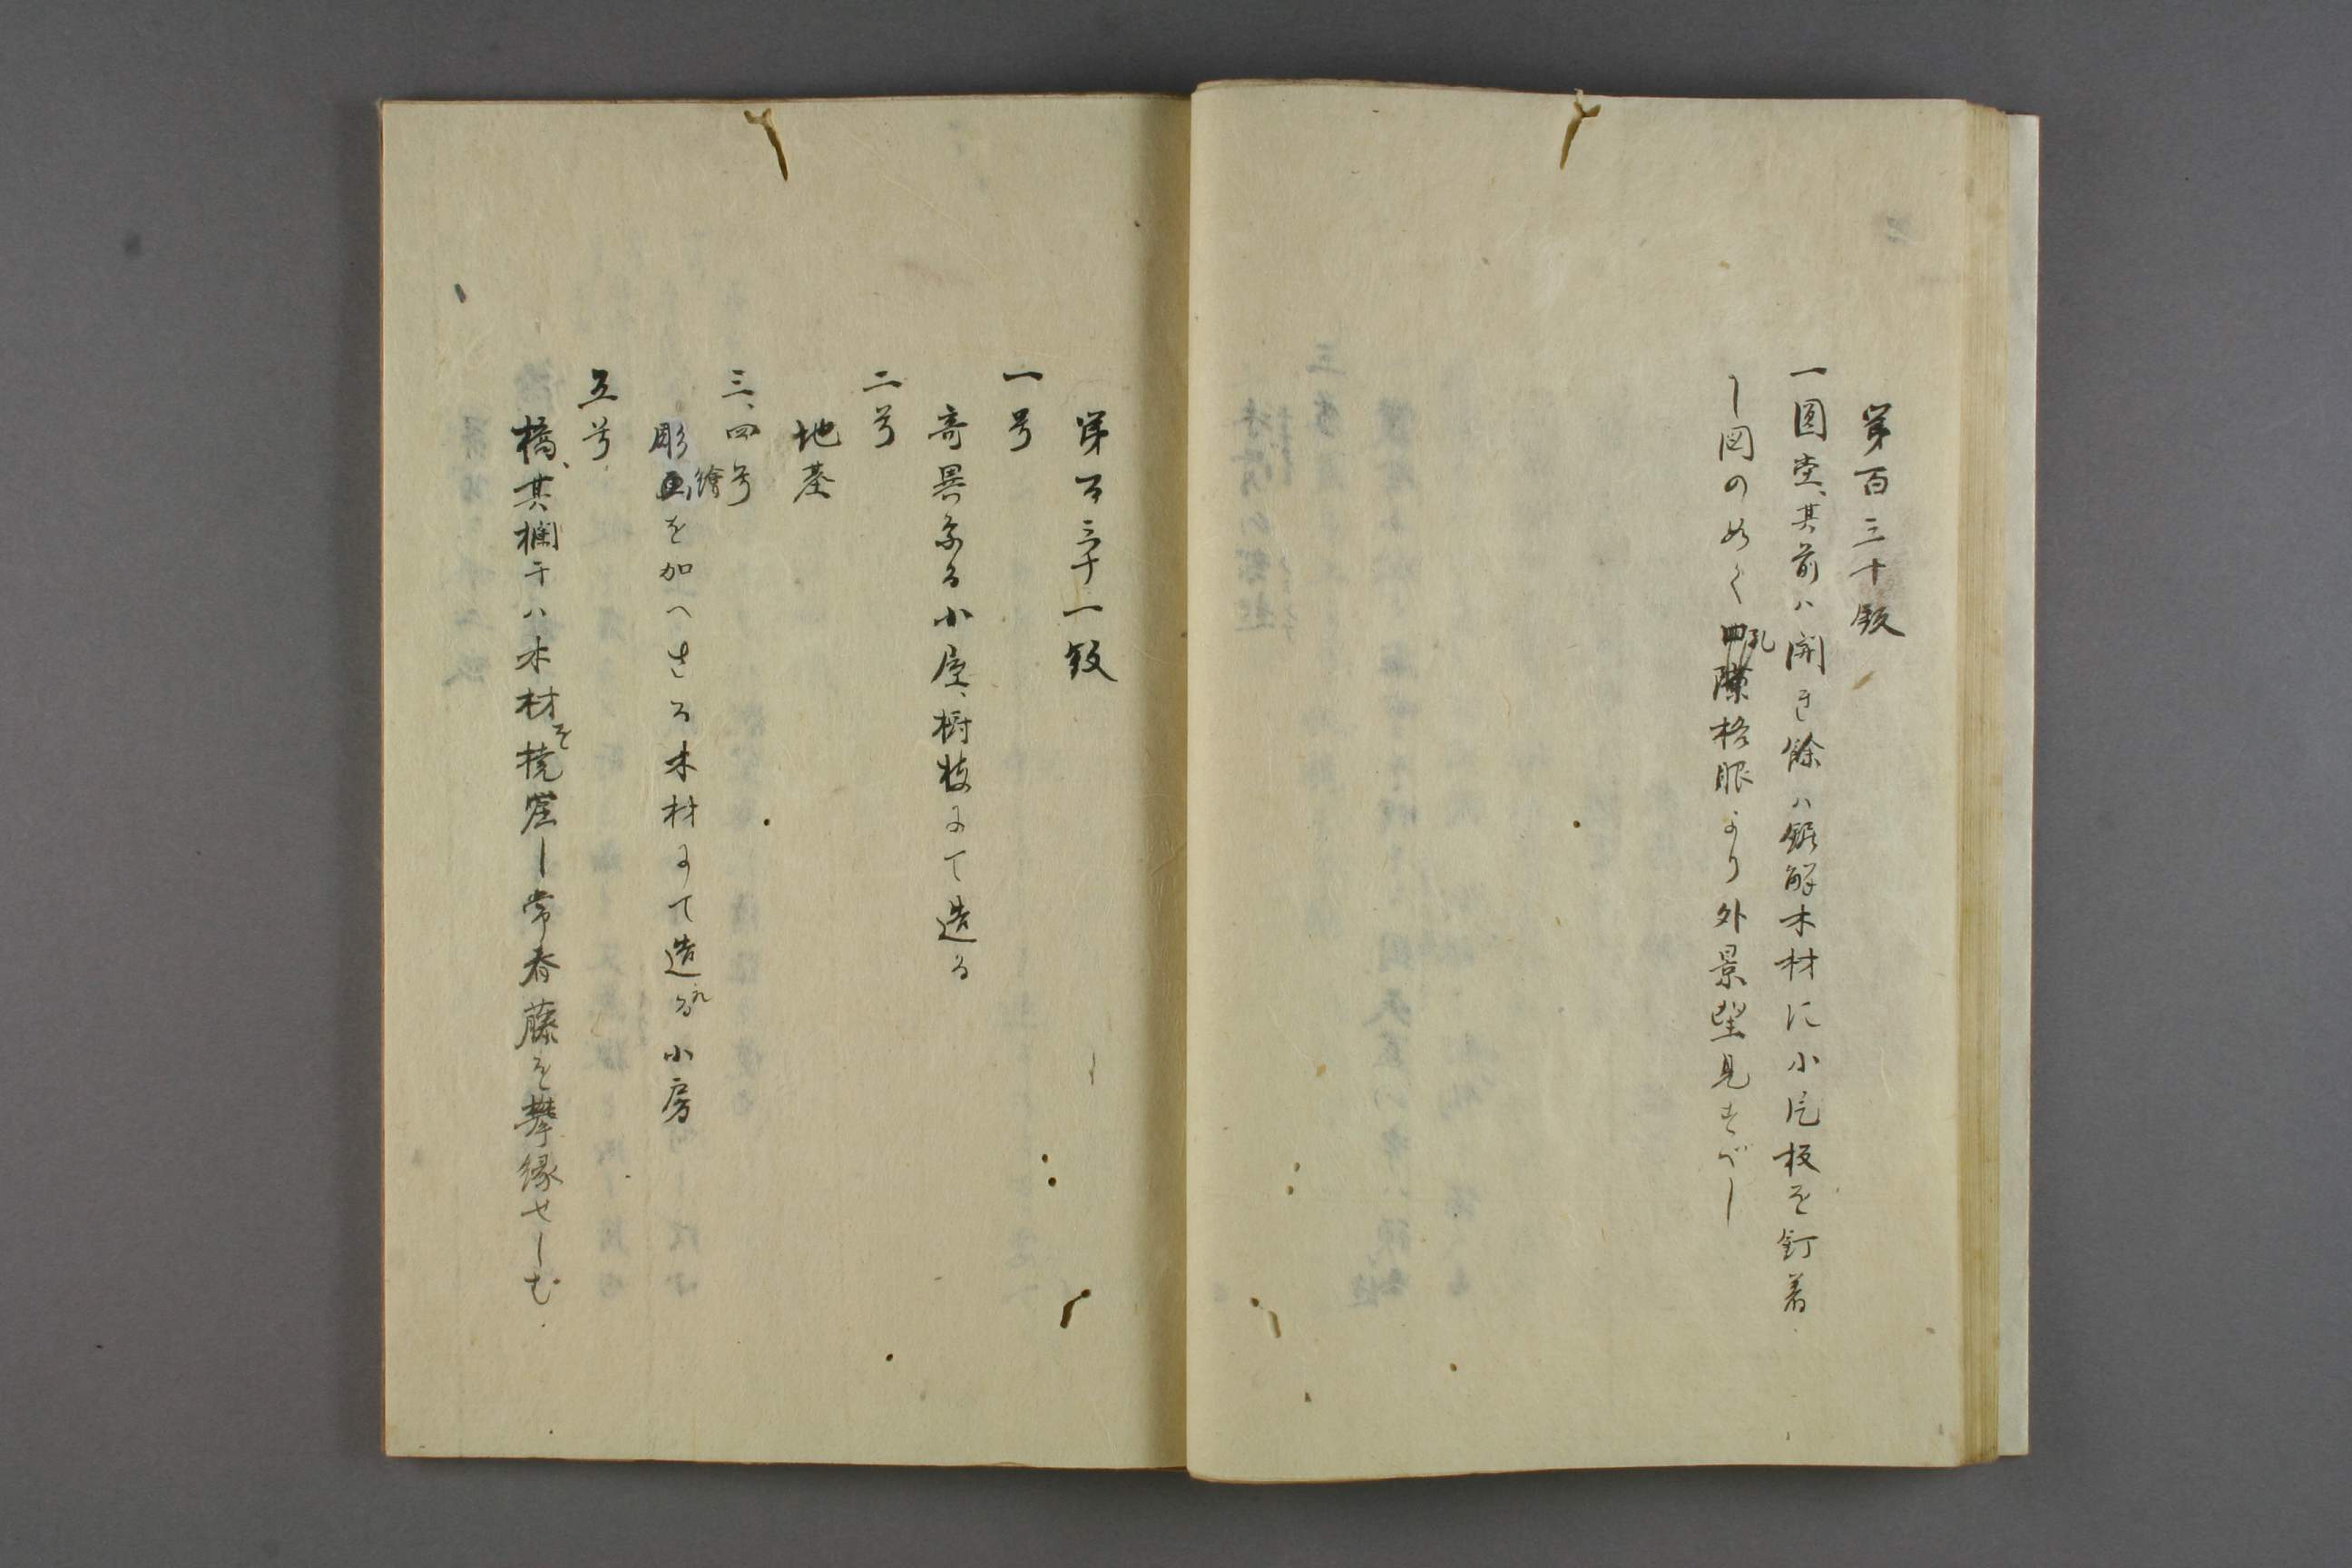 第百三十版
一圓堂、其前ハ開き餘ハ鋸解木材に小片板を釘着
し図のめく孔隙格眼より外景望見すべし
第百三十一版
一号
奇異なる小屋、樹枝にて造る
二号
地基
三、四号
彫繪を加へさる木材にて造れる小房
五号
橋、其欄干ハ木材を撓窪し常春藤を攀縁せしむ